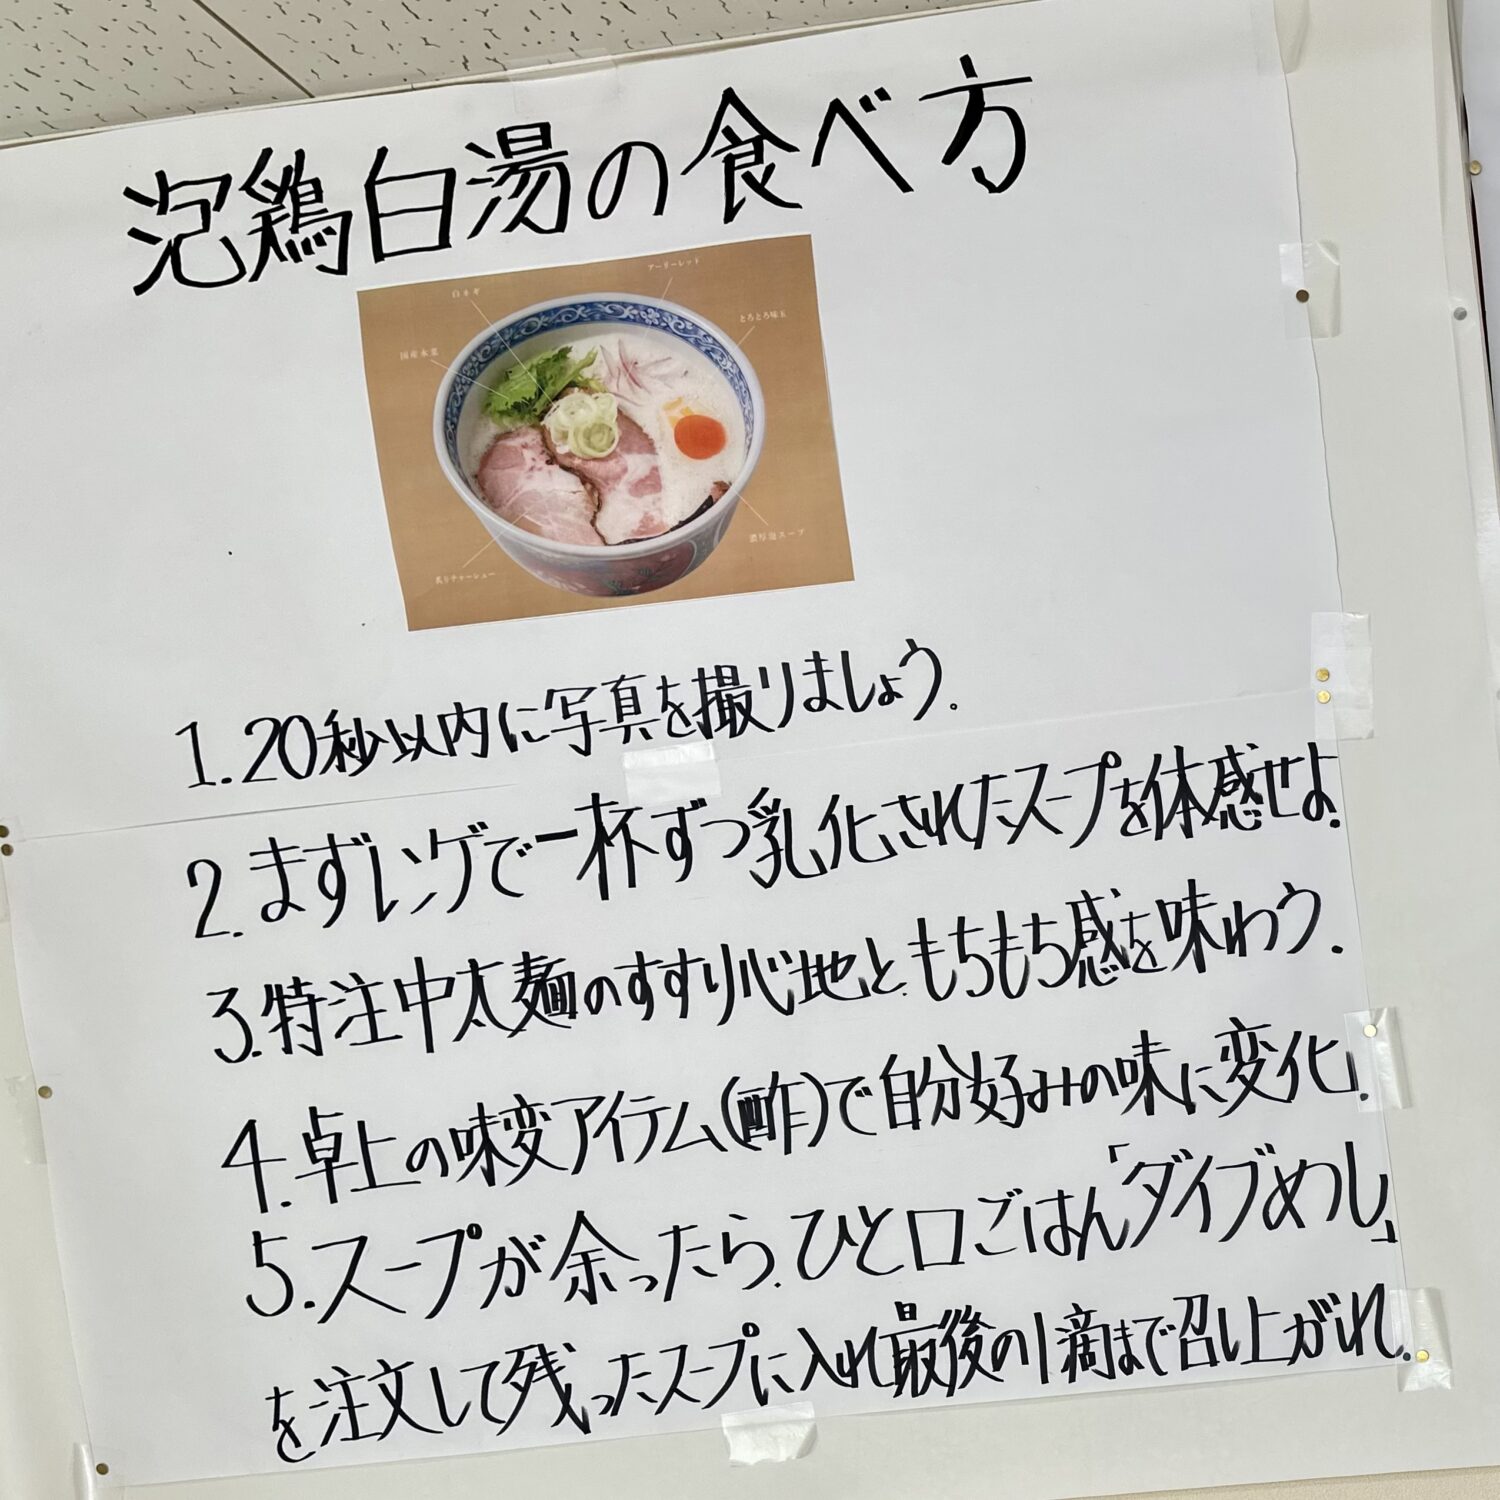 泡鶏白湯の食べ方
白ネギ
アーリーレッド
とろとろ味玉
国産水菜
濃厚泡スープ
炙りチャーシュー
1.20秒以内に写真を撮りましょう.
2.まずレンゲで一杯ずつ乳化されたスープを体感せよ.
3.特注中太麺のすすり心地ともちもち感を味わう.
4.卓上の味変アイテム(酢)で自分好みの味に変化.
5.スープが余ったら.ひと口ごはん「ダイブめし」
を注文して残ったスープに入れ最後の1滴まで召し上がれ.